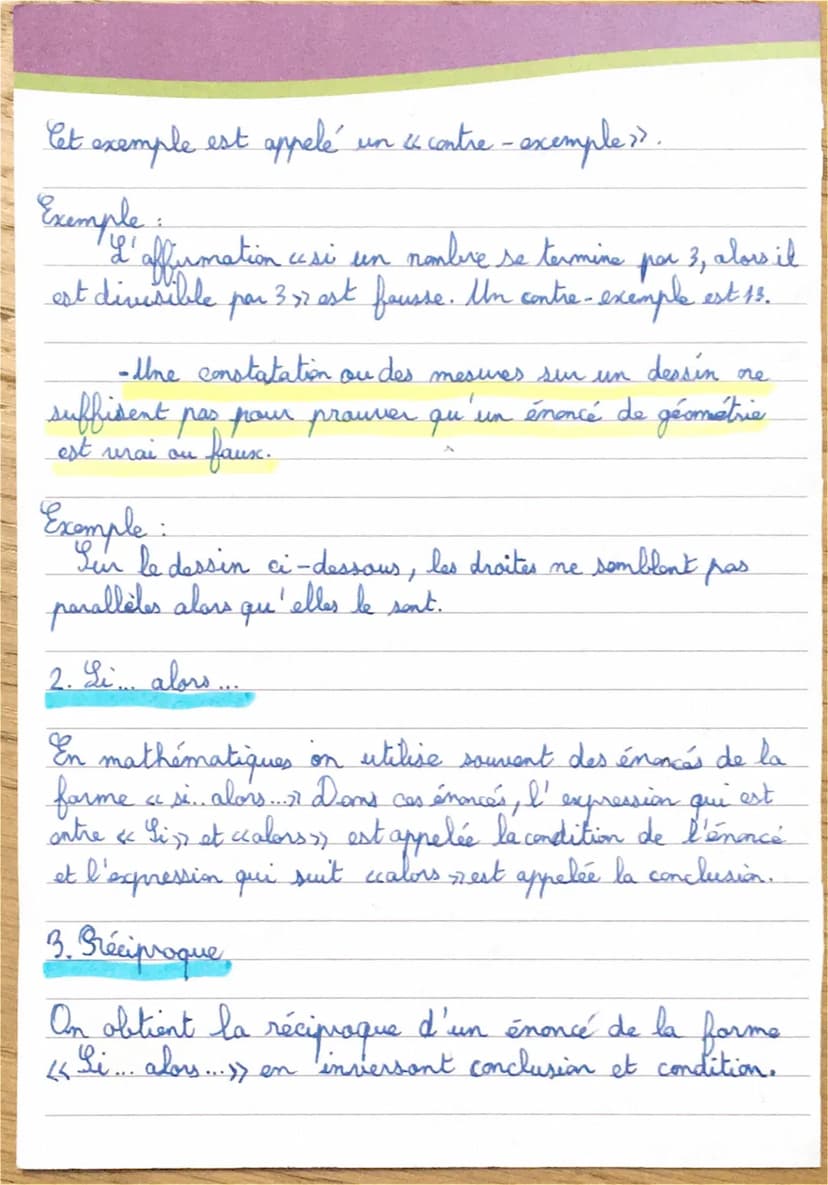 Cet exemple est appelé un « contre - exemple ».
Exemple :
L'affirmation « si un nombre se termine par 3, alors il
est divisible par 3 » est fausse. Un contre-exemple est 13.
- Une constatation ou des mesures sur un dessin ne
suffisent pas pour prouver qu'un énoncé de géométrie
est vrai ou faux.
Exemple :
Sur le dessin ci-dessous, les droites ne semblent pas
parallèles alors qu'elles le sont.
2. Si... alors...
En mathématiques on utilise souvent des énoncés de la
forme « si.. alors...» Dans ces énoncés, l'expression qui est
entre « Si » et « alors » est appelée la condition de l'énoncé
et l'expression qui suit « alors » est appelée la conclusion.
3. Réciproque
On obtient la réciproque d'un énoncé de la forme
« Si... alors...» en inversant conclusion et condition.